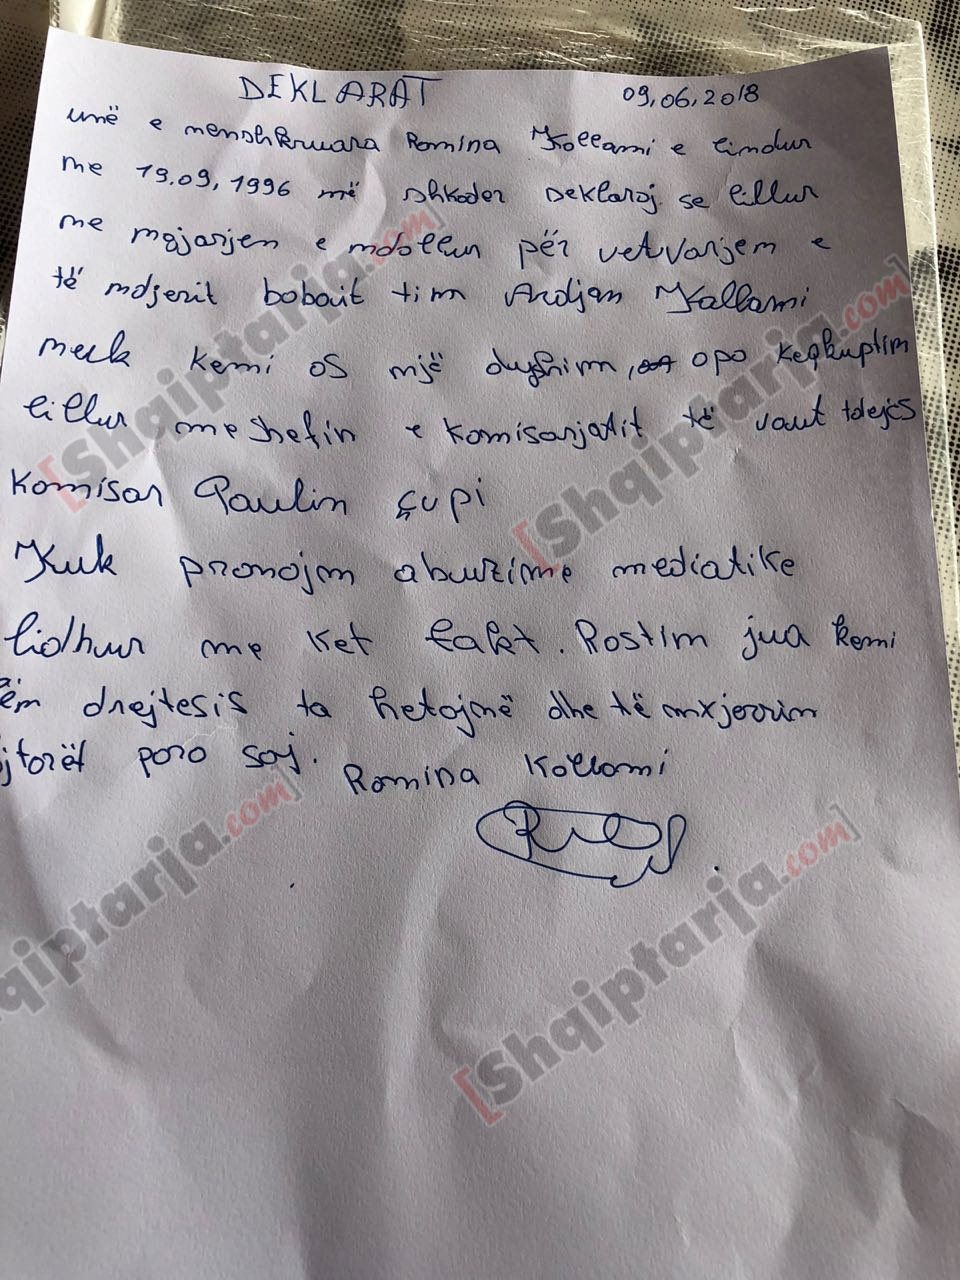 DEKLARAT 09,06,2018
unë e menshkruara Romina Kollami e lindur
me 19.09,1996 më shkoder Deklaroj se lillur
me mgjarjen e mdollur për vetvarjem e
të mdjerit babait tim Ardjan Kallami
muk kemi as një dyshim, apo keqkuptim
lillur me shefin e komisarjatit të vaut tdejës
Komisar Paulin çupi
Nuk pranojm abuzime mediatike
lidhur me ket fakt. Rastim jua kemi
drejtesis ta hetojmë dhe të mxjerrim
para saj. Romina Kollami
[Shqiptarja.com]
[Shqiptarja.com]
Shqiptarja.com]
[Shqiptarja.com]